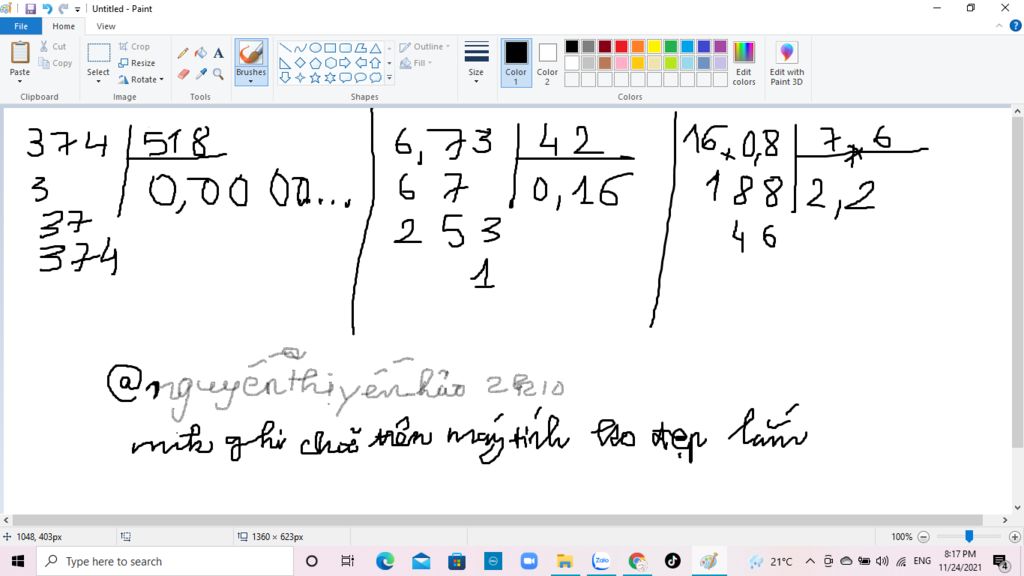 Untitled - Paint
File Home View
Paste Cut Copy Select Crop Resize Rotate Brushes Outline Fill Size Color 1 Color 2 Edit colors Edit with Paint 3D
Clipboard Image Tools Shapes Colors
374 518 6,73 42 16,0,8 7,6
3 0,00 00... 67 0,16 188 2,2
37 253 46
374 1
@nguyễnthịyếnhảo
mik ghi trên máy tính đẹp lắm
1048, 403px 1360 × 623px 100%
Type here to search 21°C ENG 8:17 PM
11/24/2021 4